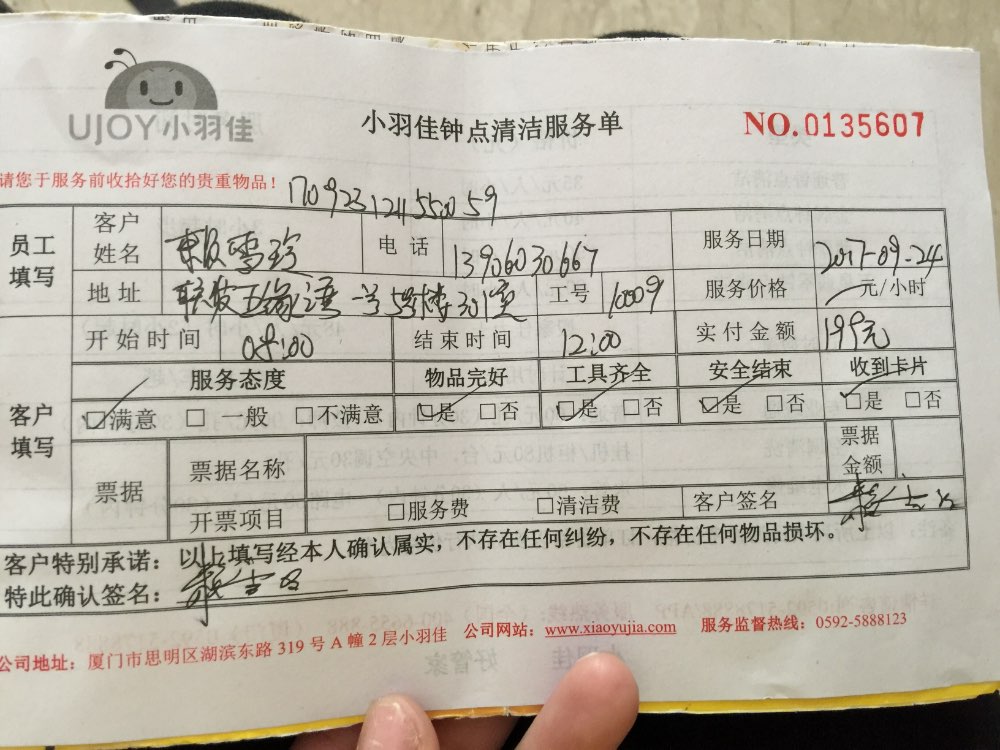 UJOY小羽佳
小羽佳钟点清洁服务单
NO.0135607
请您于服务前收拾好您的贵重物品！
员工填写 客户姓名 赖雪珍 电话 13906030667 服务日期 2017-09-24
地址 联发五缘湾一号5号楼301室 工号 10009 服务价格 元/小时
开始时间 08:00 结束时间 12:00 实付金额 199元
客户填写 服务态度 物品完好 工具齐全 安全结束 收到卡片
☑满意 □一般 □不满意 ☑是 □否 ☑是 □否 ☑是 □否 ☑是 □否
票据 票据名称 票据金额
开票项目 □服务费 □清洁费 客户签名
客户特别承诺：以上填写经本人确认属实，不存在任何纠纷，不存在任何物品损坏。
特此确认签名：
公司地址：厦门市思明区湖滨东路 319 号 A 幢 2 层小羽佳 公司网站：www.xiaoyujia.com 服务监督热线：0592-5888123